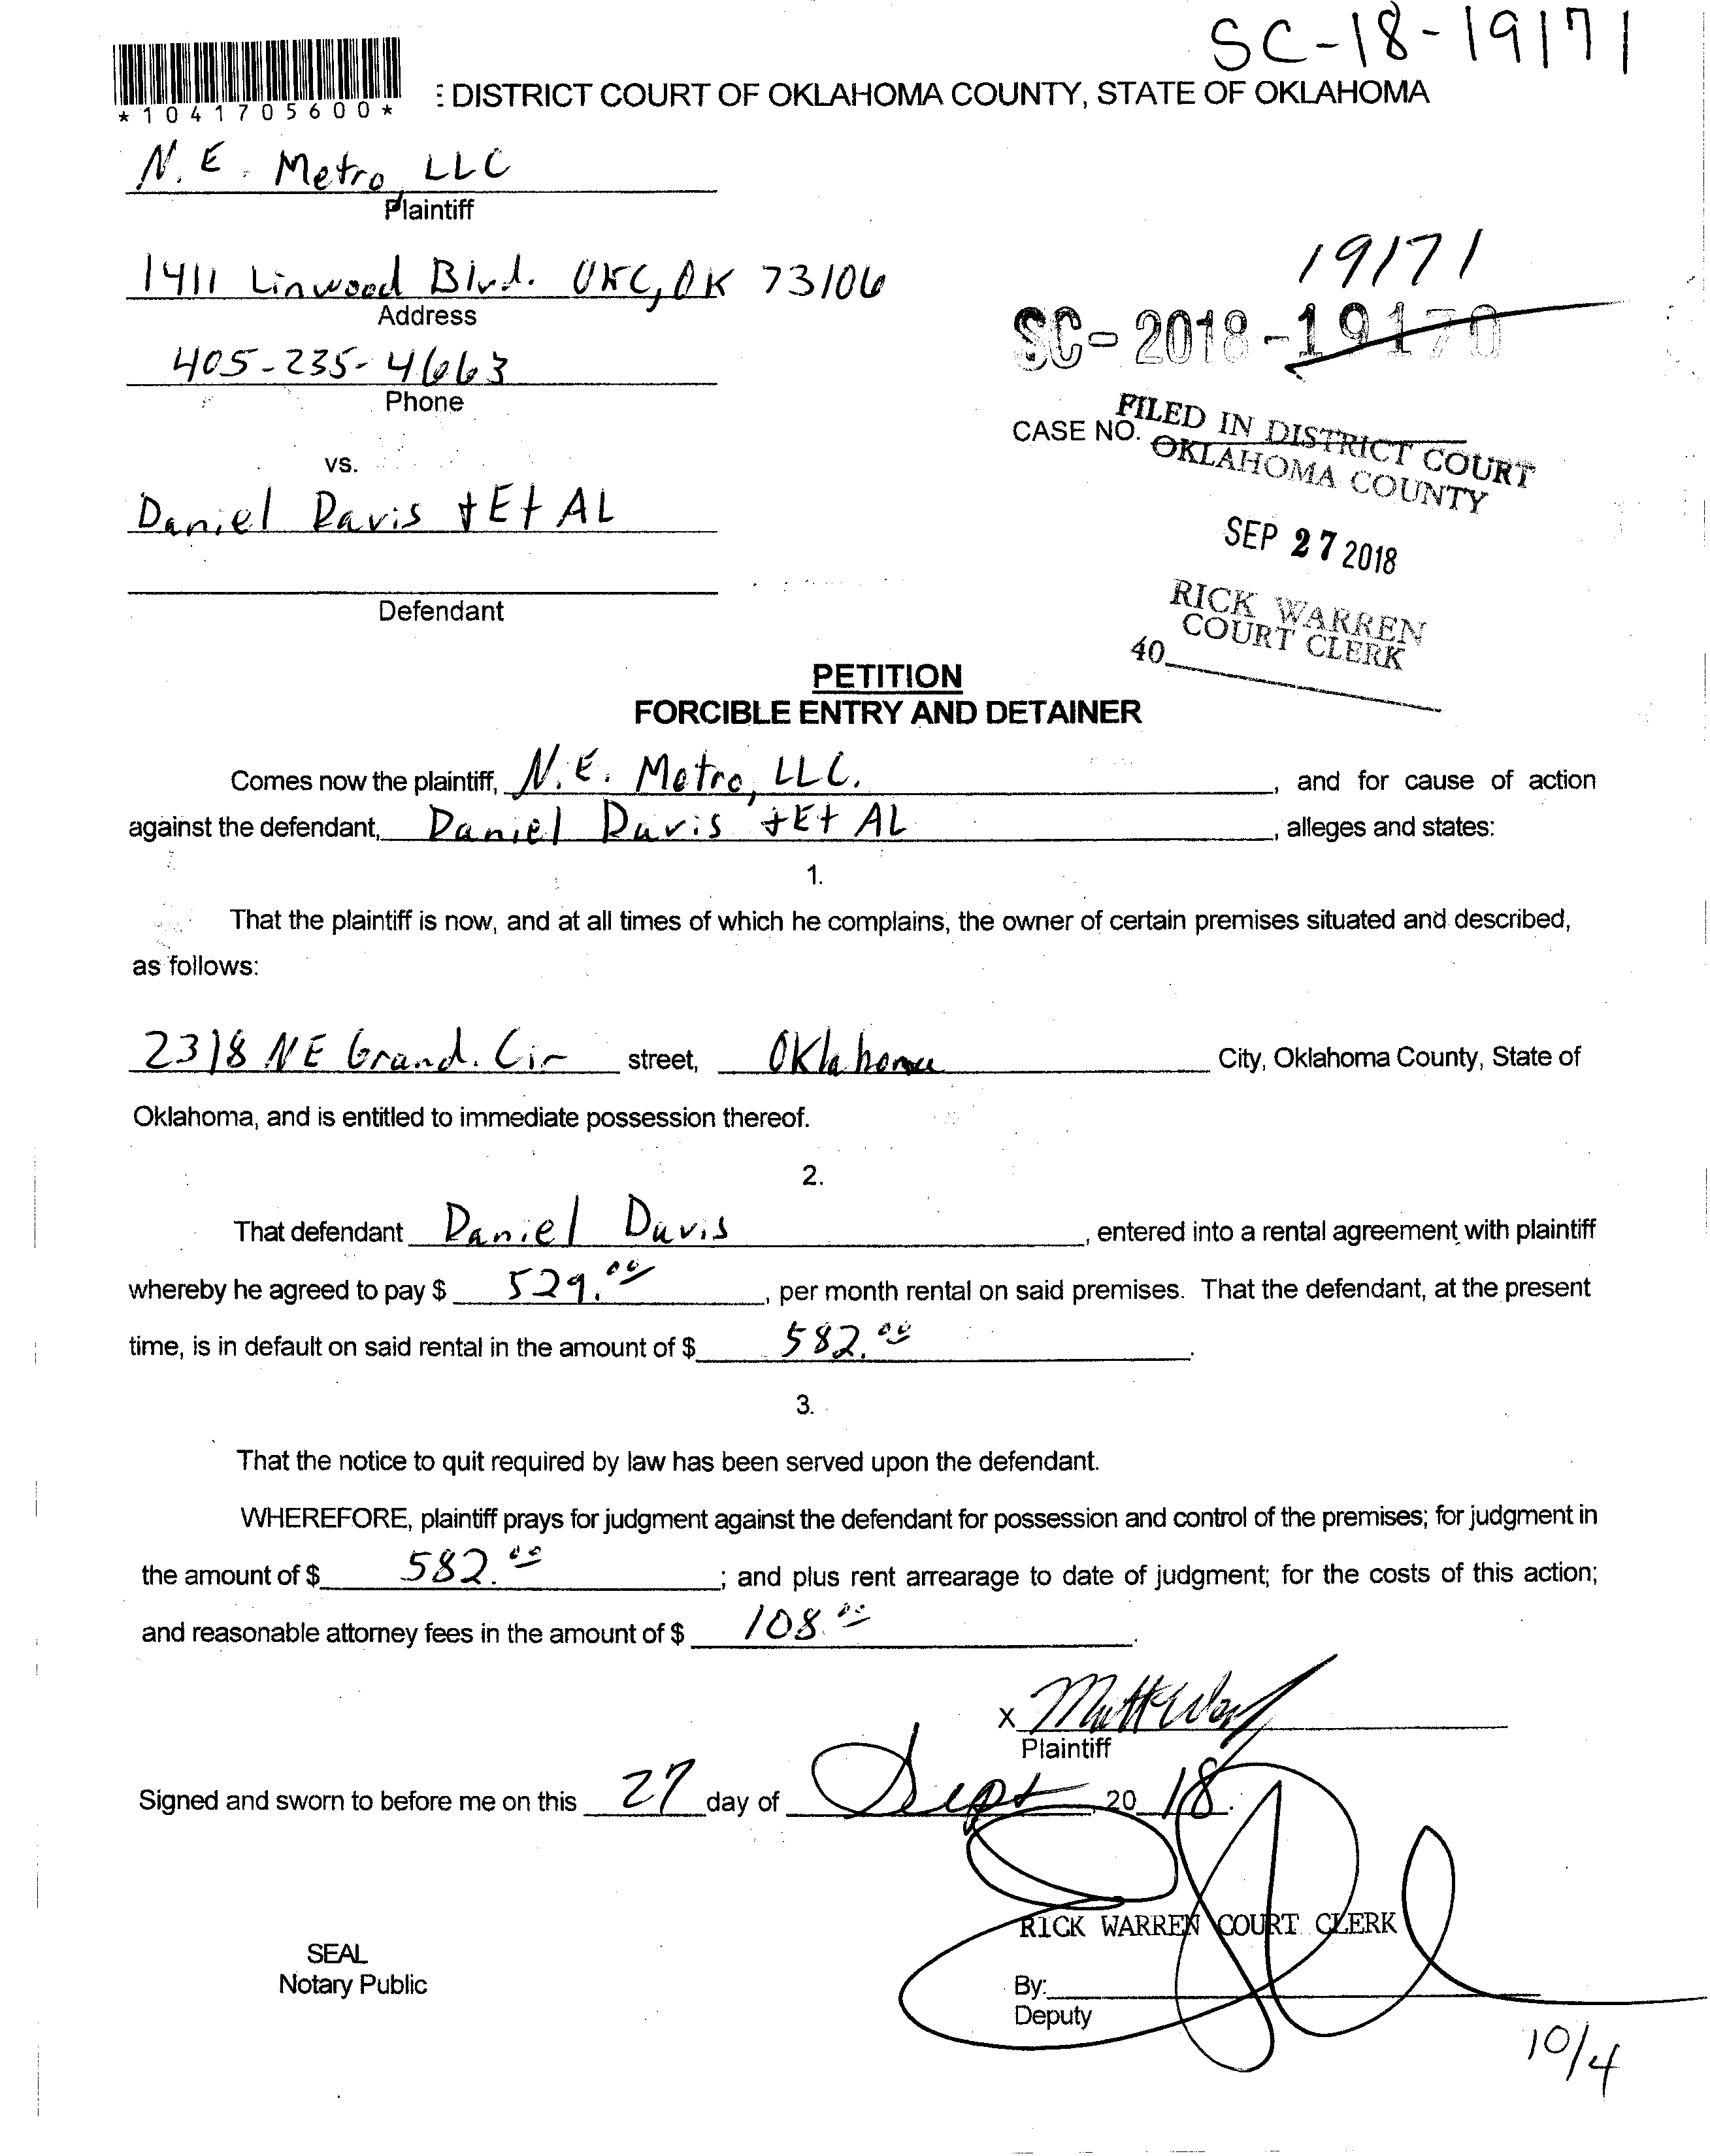 SC-18-19171
*1041705600*
: DISTRICT COURT OF OKLAHOMA COUNTY, STATE OF OKLAHOMA
N.E. Metro, LLC
Plaintiff
1411 Linwood Blvd. OKC, OK 73106
Address
19171
SC-2018-19170
405-235-4663
Phone
CASE NO.
FILED IN DISTRICT COURT
OKLAHOMA COUNTY
vs.
Daniel Davis + Et AL
SEP 27 2018
Defendant
RICK WARREN
COURT CLERK
40
PETITION
FORCIBLE ENTRY AND DETAINER
Comes now the plaintiff, N.E. Metro, LLC. , and for cause of action
against the defendant, Daniel Davis + Et AL , alleges and states:
1.
That the plaintiff is now, and at all times of which he complains, the owner of certain premises situated and described,
as follows:
2318 NE Grand. Cir street, Oklahoma City, Oklahoma County, State of
Oklahoma, and is entitled to immediate possession thereof.
2.
That defendant Daniel Davis , entered into a rental agreement with plaintiff
whereby he agreed to pay $ 529.00 , per month rental on said premises. That the defendant, at the present
time, is in default on said rental in the amount of $ 582.00 .
3.
That the notice to quit required by law has been served upon the defendant.
WHEREFORE, plaintiff prays for judgment against the defendant for possession and control of the premises; for judgment in
the amount of $ 582.00 ; and plus rent arrearage to date of judgment; for the costs of this action;
and reasonable attorney fees in the amount of $ 108.00 .
X
Plaintiff
Signed and sworn to before me on this 27 day of Sept , 20 18 .
RICK WARREN COURT CLERK
SEAL
Notary Public
By:
Deputy
10/4